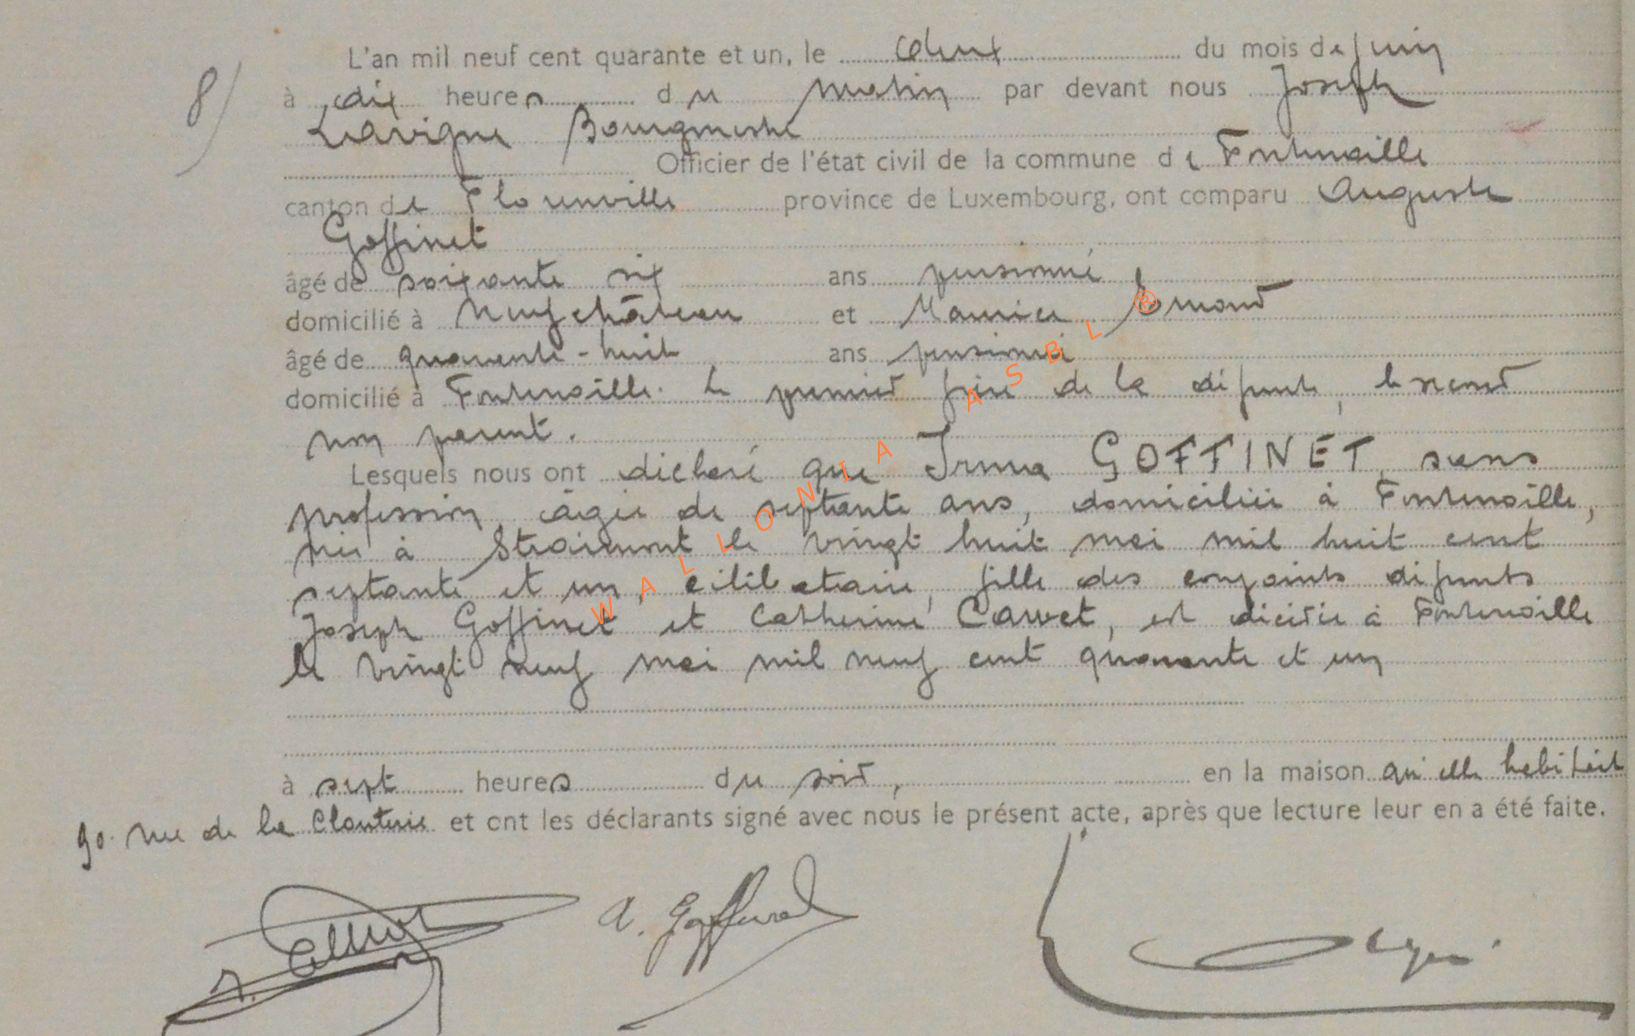 L'an mil neuf cent quarante et un, le deux du mois de juin
8)
à dix heures du matin par devant nous Joseph
Lavigne Bourgmestre
Officier de l'état civil de la commune de Fontenoille
canton de Florenville province de Luxembourg, ont comparu Auguste
Goffinet
âgé de soixante six ans pensionné
domicilié à Neufchâteau et Maurice Emond
âgé de quarante-huit ans pensionné
domicilié à Fontenoille. Le premier frère de la défunte, le second
non parent.
Lesquels nous ont déclaré que Irma GOFFINET, sans
profession, âgée de septante ans, domiciliée à Fontenoille,
née à Straimont le vingt huit mai mil huit cent
septante et un, célibataire, fille des conjoints défunts
Joseph Goffinet et Catherine Cawet, est décédée à Fontenoille
le vingt neuf mai mil neuf cent quarante et un
à sept heures du soir, en la maison qu'elle habitait
90. rue de la Clouterie et ont les déclarants signé avec nous le présent acte, après que lecture leur en a été faite.
A. Goffinet
WALLONIA ASBL ®